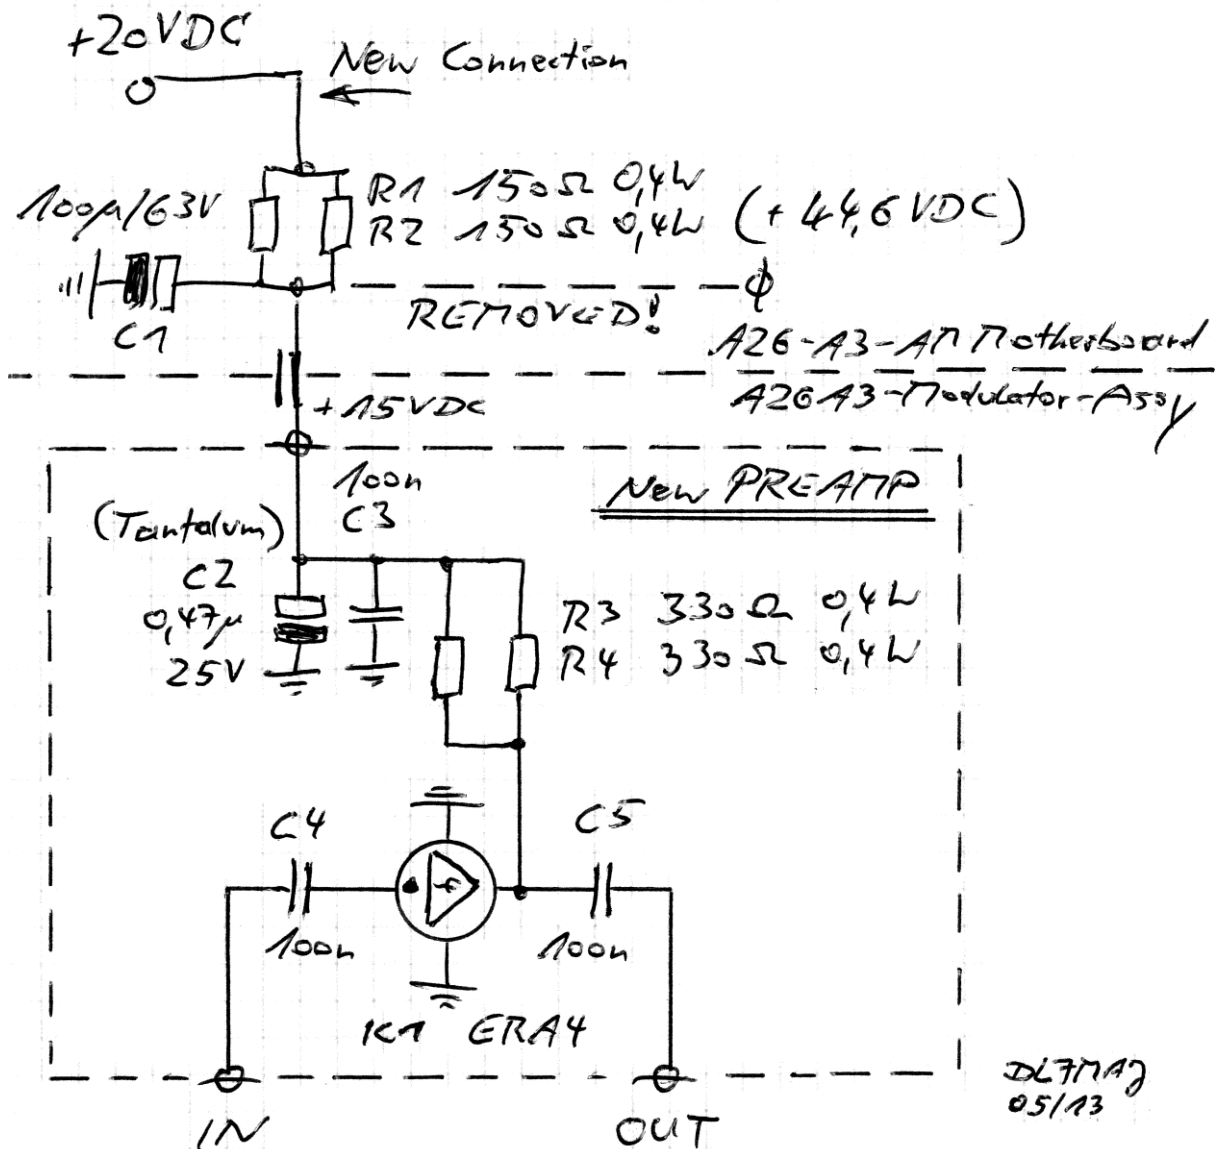 +20VDC
New Connection
100µ/63V
R1 150Ω 0,4W
R2 150Ω 0,4W
(+44,6VDC)
C1
REMOVED!
A26-A3-AM Motherboard
+15VDC
A26A3-Modulator-Assy
100n
C3
New PREAMP
(Tantalum)
C2
0,47µ
25V
R3 330Ω 0,4W
R4 330Ω 0,4W
C4
C5
100n
100n
K1 ERA4
IN
OUT
DL7MAJ
05/13